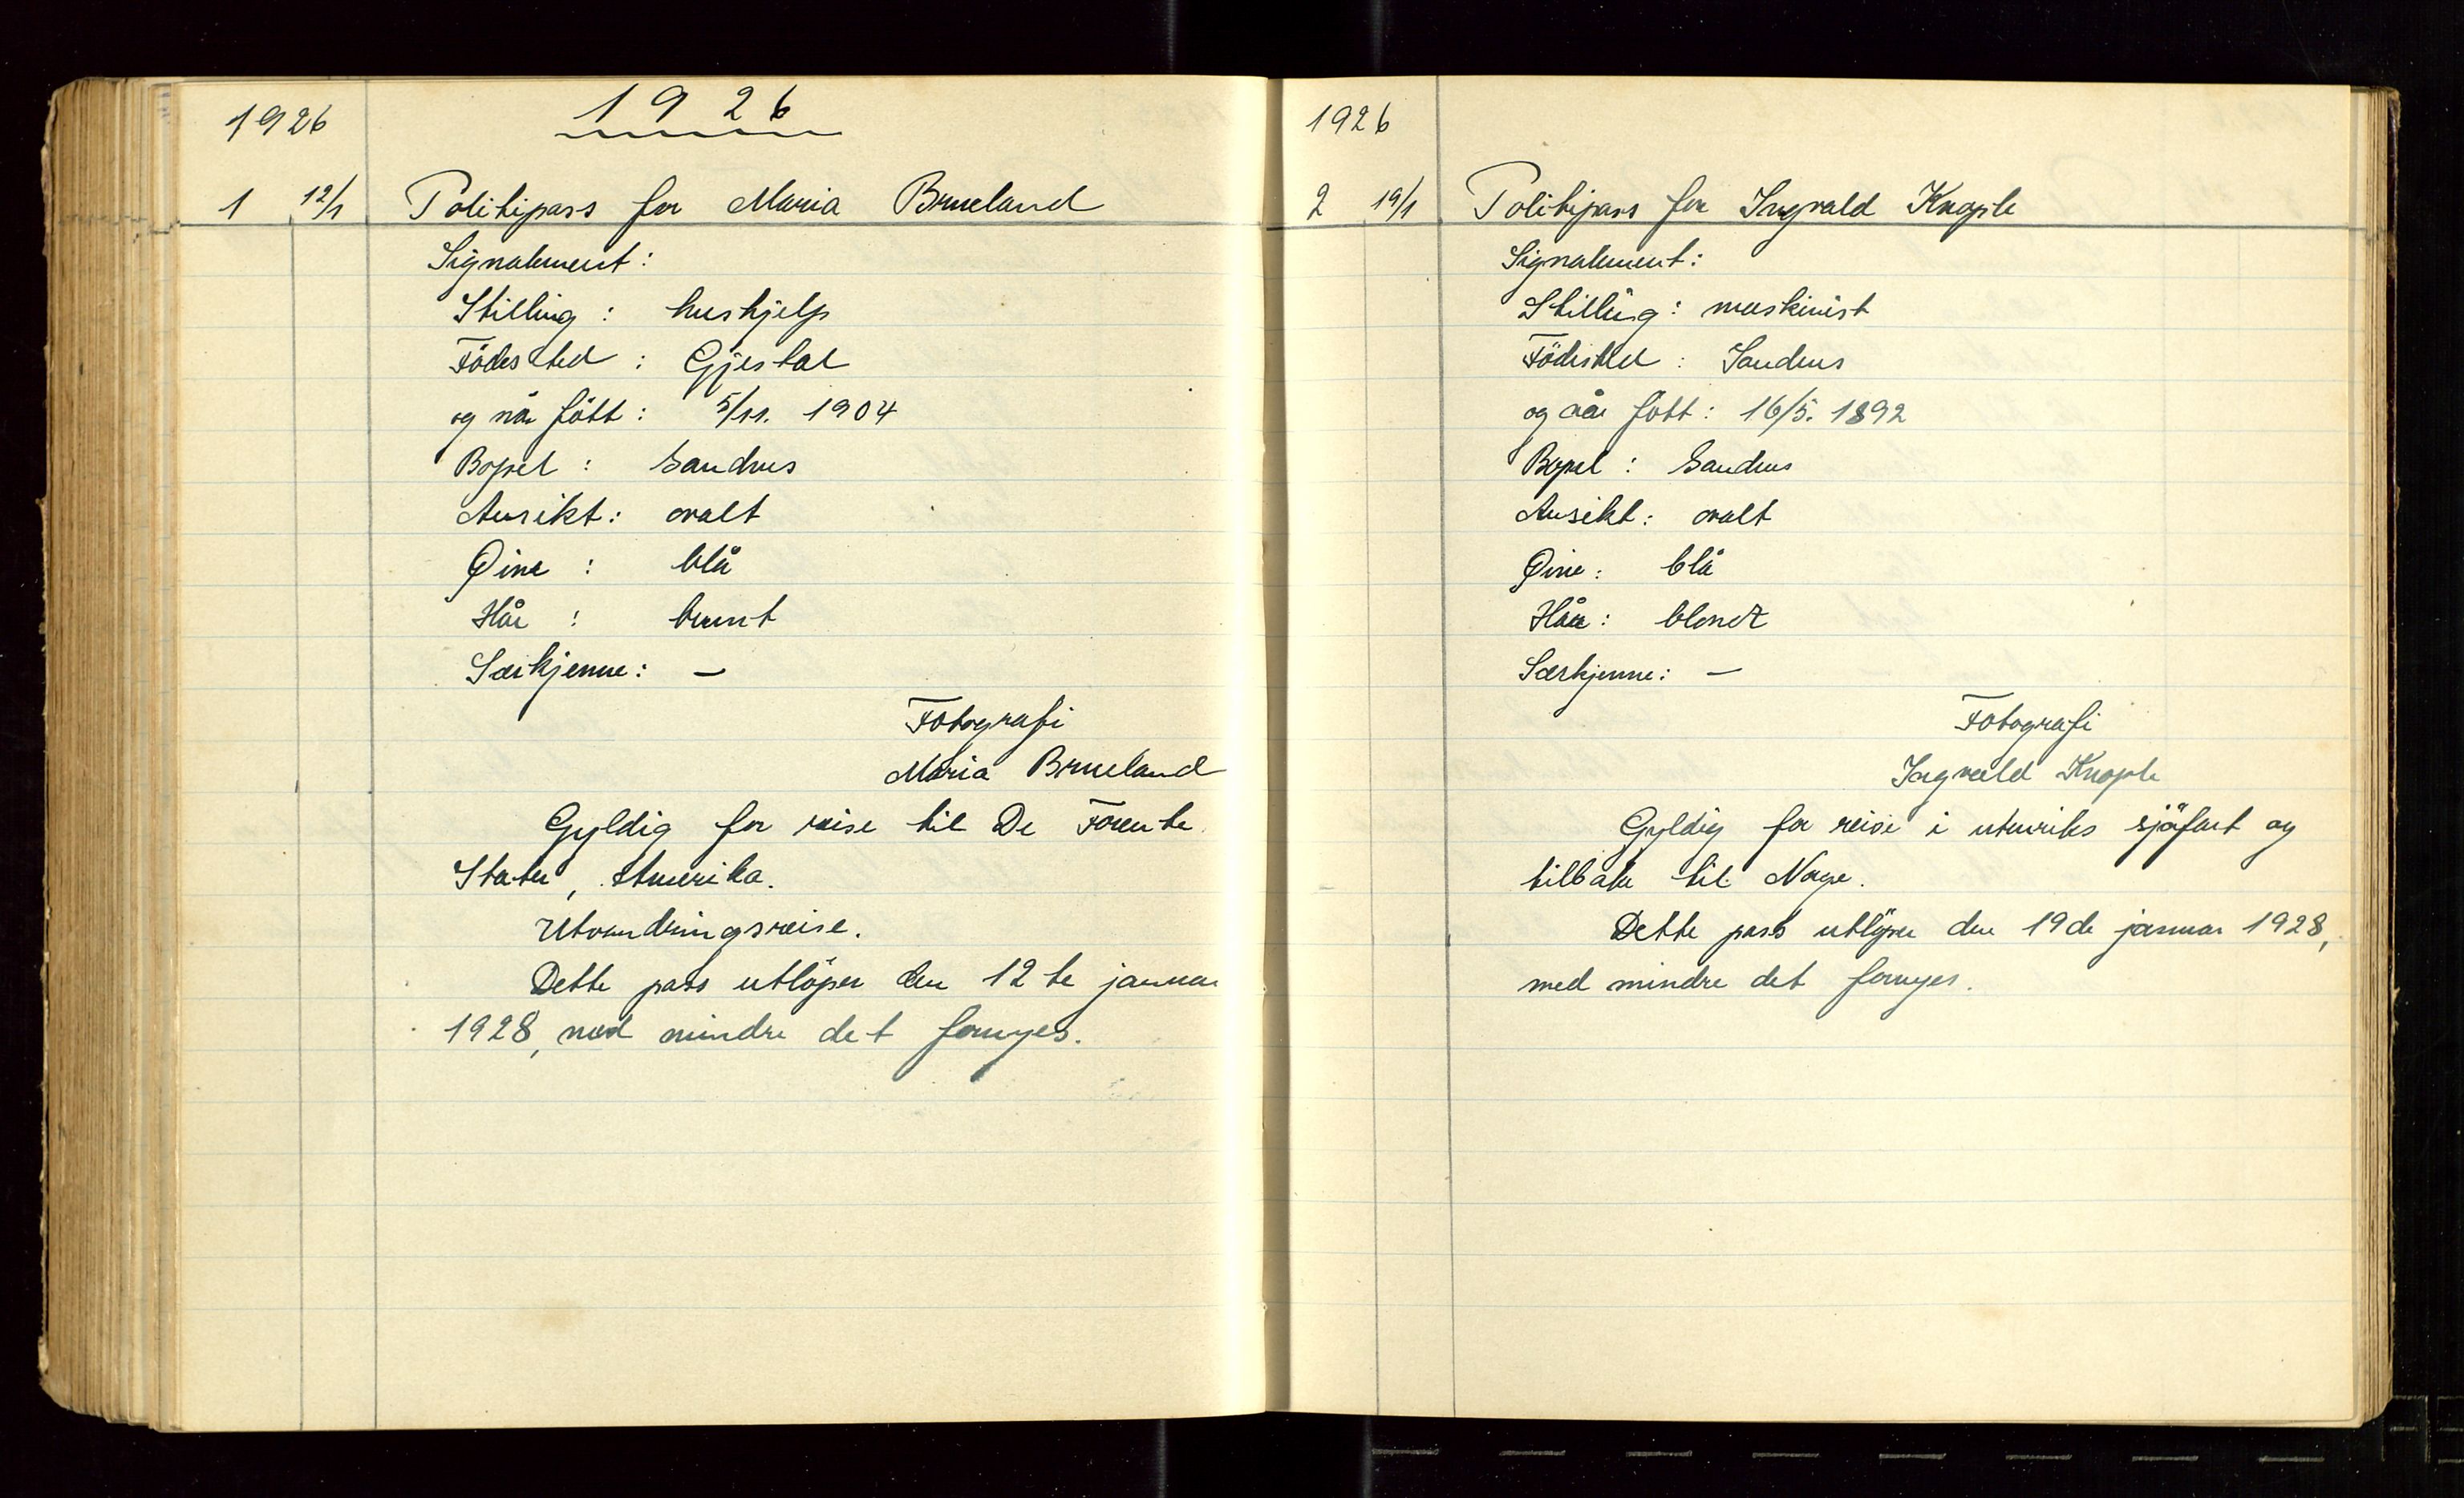 1926
1926
1 12/1 Politipass for Maria Brueland
Signalement:
Stilling: hushjelp
Födested: Gjestal
og når född: 5/11. 1904
Bopel: Sandnes
Ansikt: ovalt
Øine: blå
Hår: brunt
Særkjenne: —
Fotografi
Maria Brueland
Gyldig for reise til De Forente
Stater, Amerika.
Utvandringsreise.
Dette pass utlöper den 12te januar
1928, med mindre det fornyes.
1926
2 19/1 Politipass for Ingvald Knople
Signalement:
Stilling: maskinist
Födested: Sandnes
og når fött: 16/5. 1892
Bopel: Sandnes
Ansikt: ovalt
Øine: blå
Hår: blondt
Særkjenne: —
Fotografi
Ingvald Knople
Gyldig for reise i utenriks sjöfart og
tilbake til Norge.
Dette pass utlöper den 19de januar 1928,
med mindre det fornyes.